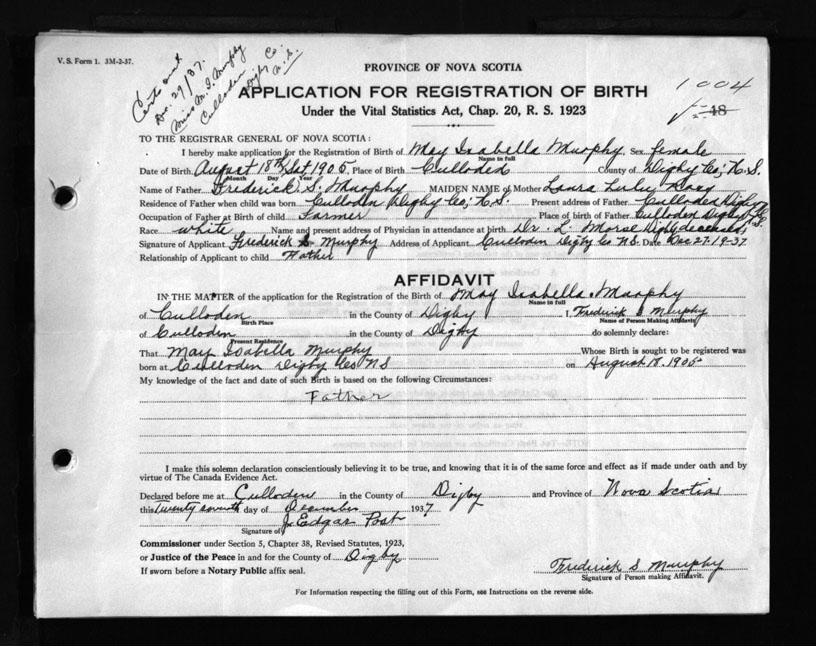 V. S. Form 1. 3M-2-37.
Cert sent
Dec. 29/37.
Miss M. I. Murphy
Culloden
Digby Co.
N. S.
PROVINCE OF NOVA SCOTIA
APPLICATION FOR REGISTRATION OF BIRTH
1004
Under the Vital Statistics Act, Chap. 20, R. S. 1923
18
TO THE REGISTRAR GENERAL OF NOVA SCOTIA:
I hereby make application for the Registration of Birth of May Isabella Murphy Sex female
Name in full
Date of Birth August 18th Sat 1905, Place of Birth Culloden County of Digby Co; N. S.
Month Day Year
Name of Father Frederick S. Murphy MAIDEN NAME of Mother Laura Lulu
Residence of Father when child was born Culloden Digby Co; N. S. Present address of Father Culloden Digby
Occupation of Father at Birth of child Farmer Place of birth of Father Culloden Digby Co N.S.
Race white Name and present address of Physician in attendance at birth Dr. L. Morse Digby deceased
Signature of Applicant Frederick S Murphy Address of Applicant Culloden Digby Co NS. Date Dec 27-19-37
Relationship of Applicant to child Father
AFFIDAVIT
IN THE MATTER of the application for the Registration of the Birth of May Isabella Murphy
Name in full
of Culloden in the County of Digby I, Frederick S Murphy
Birth Place Name of Person Making Affidavit
of Culloden in the County of Digby do solemnly declare:
Present Residence
That May Isabella Murphy Whose Birth is sought to be registered was
born at Culloden Digby Co NS on August 18. 1905
My knowledge of the fact and date of such Birth is based on the following Circumstances:
Father
I make this solemn declaration conscientiously believing it to be true, and knowing that it is of the same force and effect as if made under oath and by
virtue of The Canada Evidence Act.
Declared before me at Culloden in the County of Digby and Province of Nova Scotia
this Twenty seventh day of December 1937
J. Edgar Post
Signature of
Commissioner under Section 5, Chapter 38, Revised Statutes, 1923,
or Justice of the Peace in and for the County of Digby
If sworn before a Notary Public affix seal.
Frederick S Murphy
Signature of Person making Affidavit.
For Information respecting the filling out of this Form, see Instructions on the reverse side.